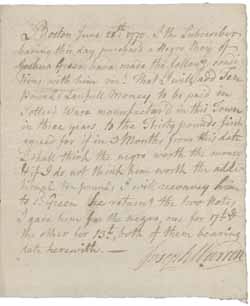 Boston June 28th. 1770. I the Subscriber
having this day purchased a Negro Boy of
Joshua Green have made the following
with him viz. That I will add Ten
Pounds Lawfull Money to be paid in
Potter's Ware manufactur'd in this Town
in three years to the Thirty pounds first
agreed for if in 3 Months from this date
I shall think the negro worth the money
& if I do not think him worth the addi-
tional ten pounds I will reconvey him
to sd. Green he return the two Notes
I gave him for the negro, one for 17£ &
the other for 13£, both of them bearing
date herewith. —
Joseph Warren